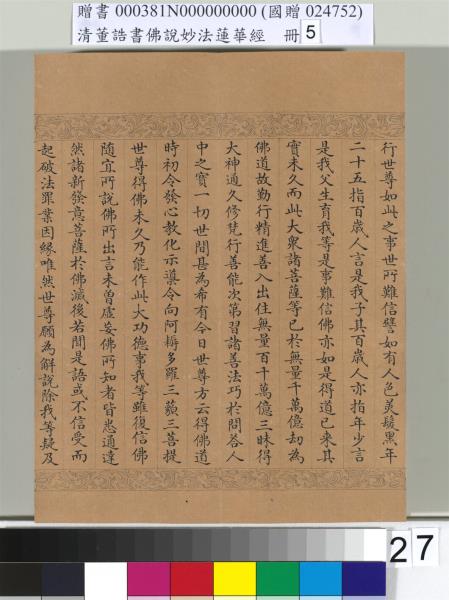 贈書 000381N000000000 (國贈 024752)
清董誥書佛說妙法蓮華經 冊 5
行世尊如此之事世所難信譬如有人色美髮黑年
二十五指百歲人言是我子其百歲人亦指年少言
是我父生育我等是事難信佛亦如是得道已來其
實未久而此大眾諸菩薩等已於無量千萬億劫為
佛道故勤行精進善入出住無量百千萬億三昧得
大神通久修梵行善能次第習諸善法巧於問答人
中之寶一切世間甚為希有今日世尊方云得佛道
時初令發心教化示導令向阿耨多羅三藐三菩提
世尊得佛未久乃能作此大功德事我等雖復信佛
隨宜所說佛所出言未曾虛妄佛所知者皆悉通達
然諸新發意菩薩於佛滅後若聞是語或不信受而
起破法罪業因緣唯然世尊願為解說除我等疑及
27